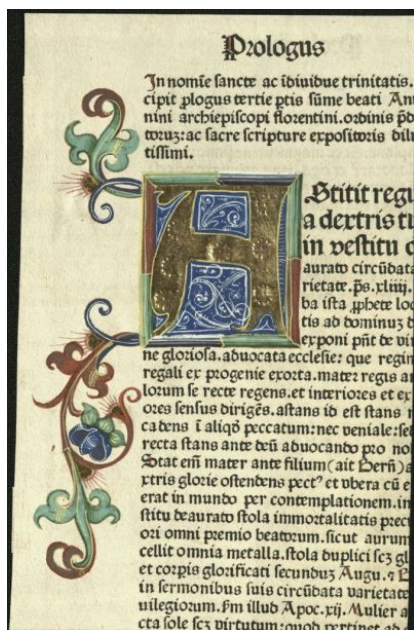 Prologus
In nomīe sancte ac īdiuidue trinitatis.
cipit ꝓlogus tertie ꝑtis sūme beati An
nini archiepiscopi florentini. ordinis p̄d
toruꝫ: ac sacre scripture expositoris dilu
tissimi.
AStitit regi
a dextris tu
in vestitu d
aurato circūdata
rietate. p̄s. xliiij.
ba ista ꝓphete loq
tis ad dominuꝫ d
exponi pn̄t de vir
ne gloriosa. aduocata ecclesie: que regin
regali ex progenie exorta. mater regis an
lorum se recte regens. et interiores et ex
ores sensus dirigēs. astans id est stans n
cadens ī aliqḋ peccatum: nec veniale: sed
recta stans ante deū aduocando pro no
Stat em̄ mater ante filium (ait Bern̄) a
xtris glorie ostendens pectꝰ et vbera cū e
erat in mundo per contemplationem. in
stitu deaurato stola immortalitatis preci
ori omni premio beatorum. sicut aurum
cellit omnia metalla. stola duplici scꝫ gl
et corpis glorificati secunduꝫ Augu. ⁊ B
in sermonibus suis circūdata varietate
uilegiorum. fm illud Apoc. xij. Mulier a
cta sole scꝫ virtutum: quod pertinet ad